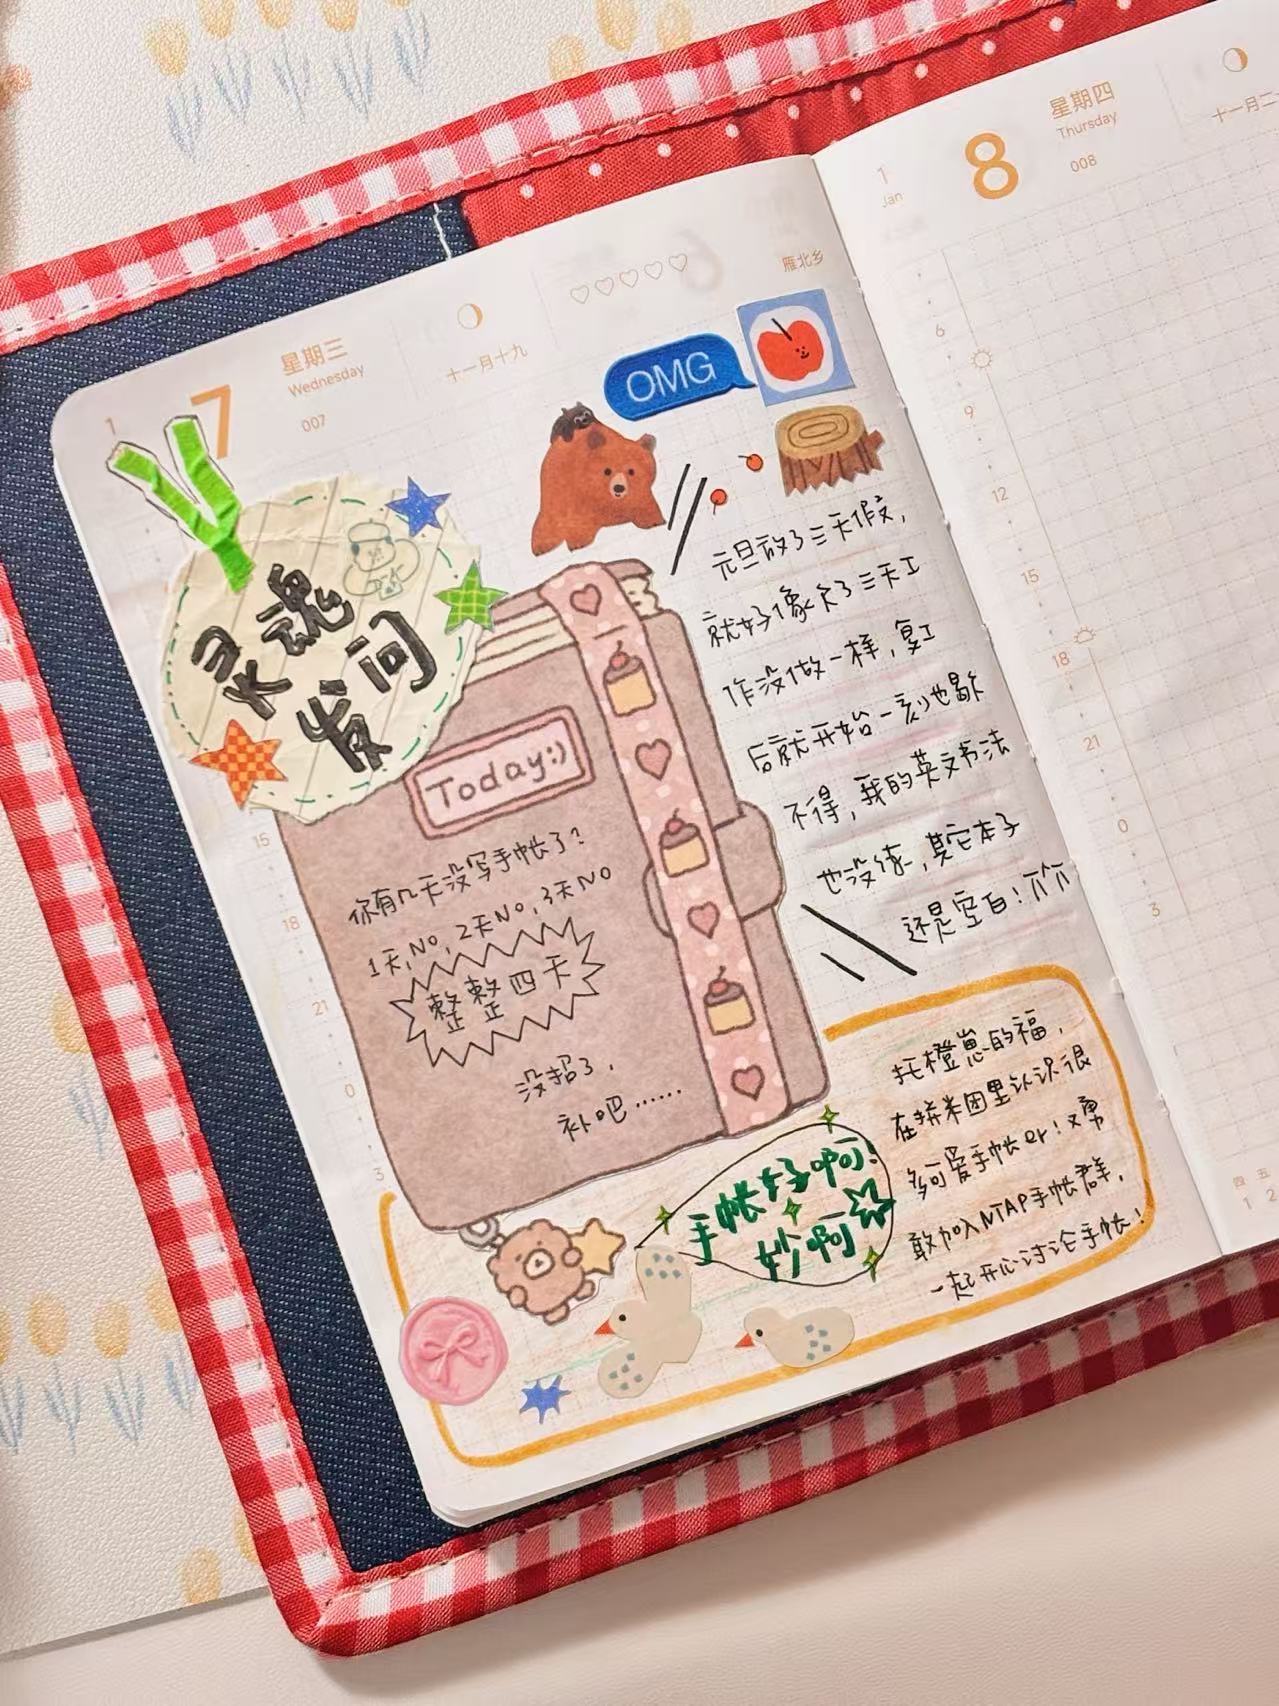 1
7
星期三
Wednesday
007
十一月十九
雁北乡
OMG
灵魂
发问
Today:)
你有几天没写手帐了?
1天,NO,2天NO,3天NO
整整四天
没招了,
补吧……
元旦放了三天假,
就好像欠了三天工
作没做一样,复工
后就开始一刻也歇
不得,我的英文书法
也没练,其它本子
还是空白!
托橙崽的福,
在拼米团里认识很
多可爱手帐er!又勇
敢加入NTAP手帐群,
一起开心讨论手帐!
手帐好啊!
妙啊
15
18
21
0
3
1
Jan
8
星期四
Thursday
008
十一月二
6
9
12
15
18
21
0
3
四 五
1 2